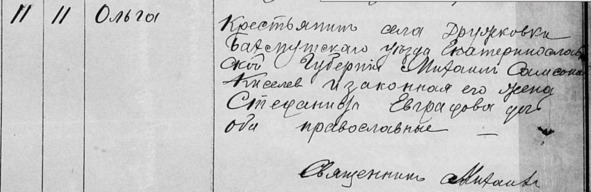 11 11 Ольга
Крестьянинъ села Дружковки
Бахмутскаго уѣзда Екатеринослав
ской Губерніи Михаилъ Самсонов
Киселев и законная его жена
Стефанида Евграфова
оба православные
Священникъ Михаилъ